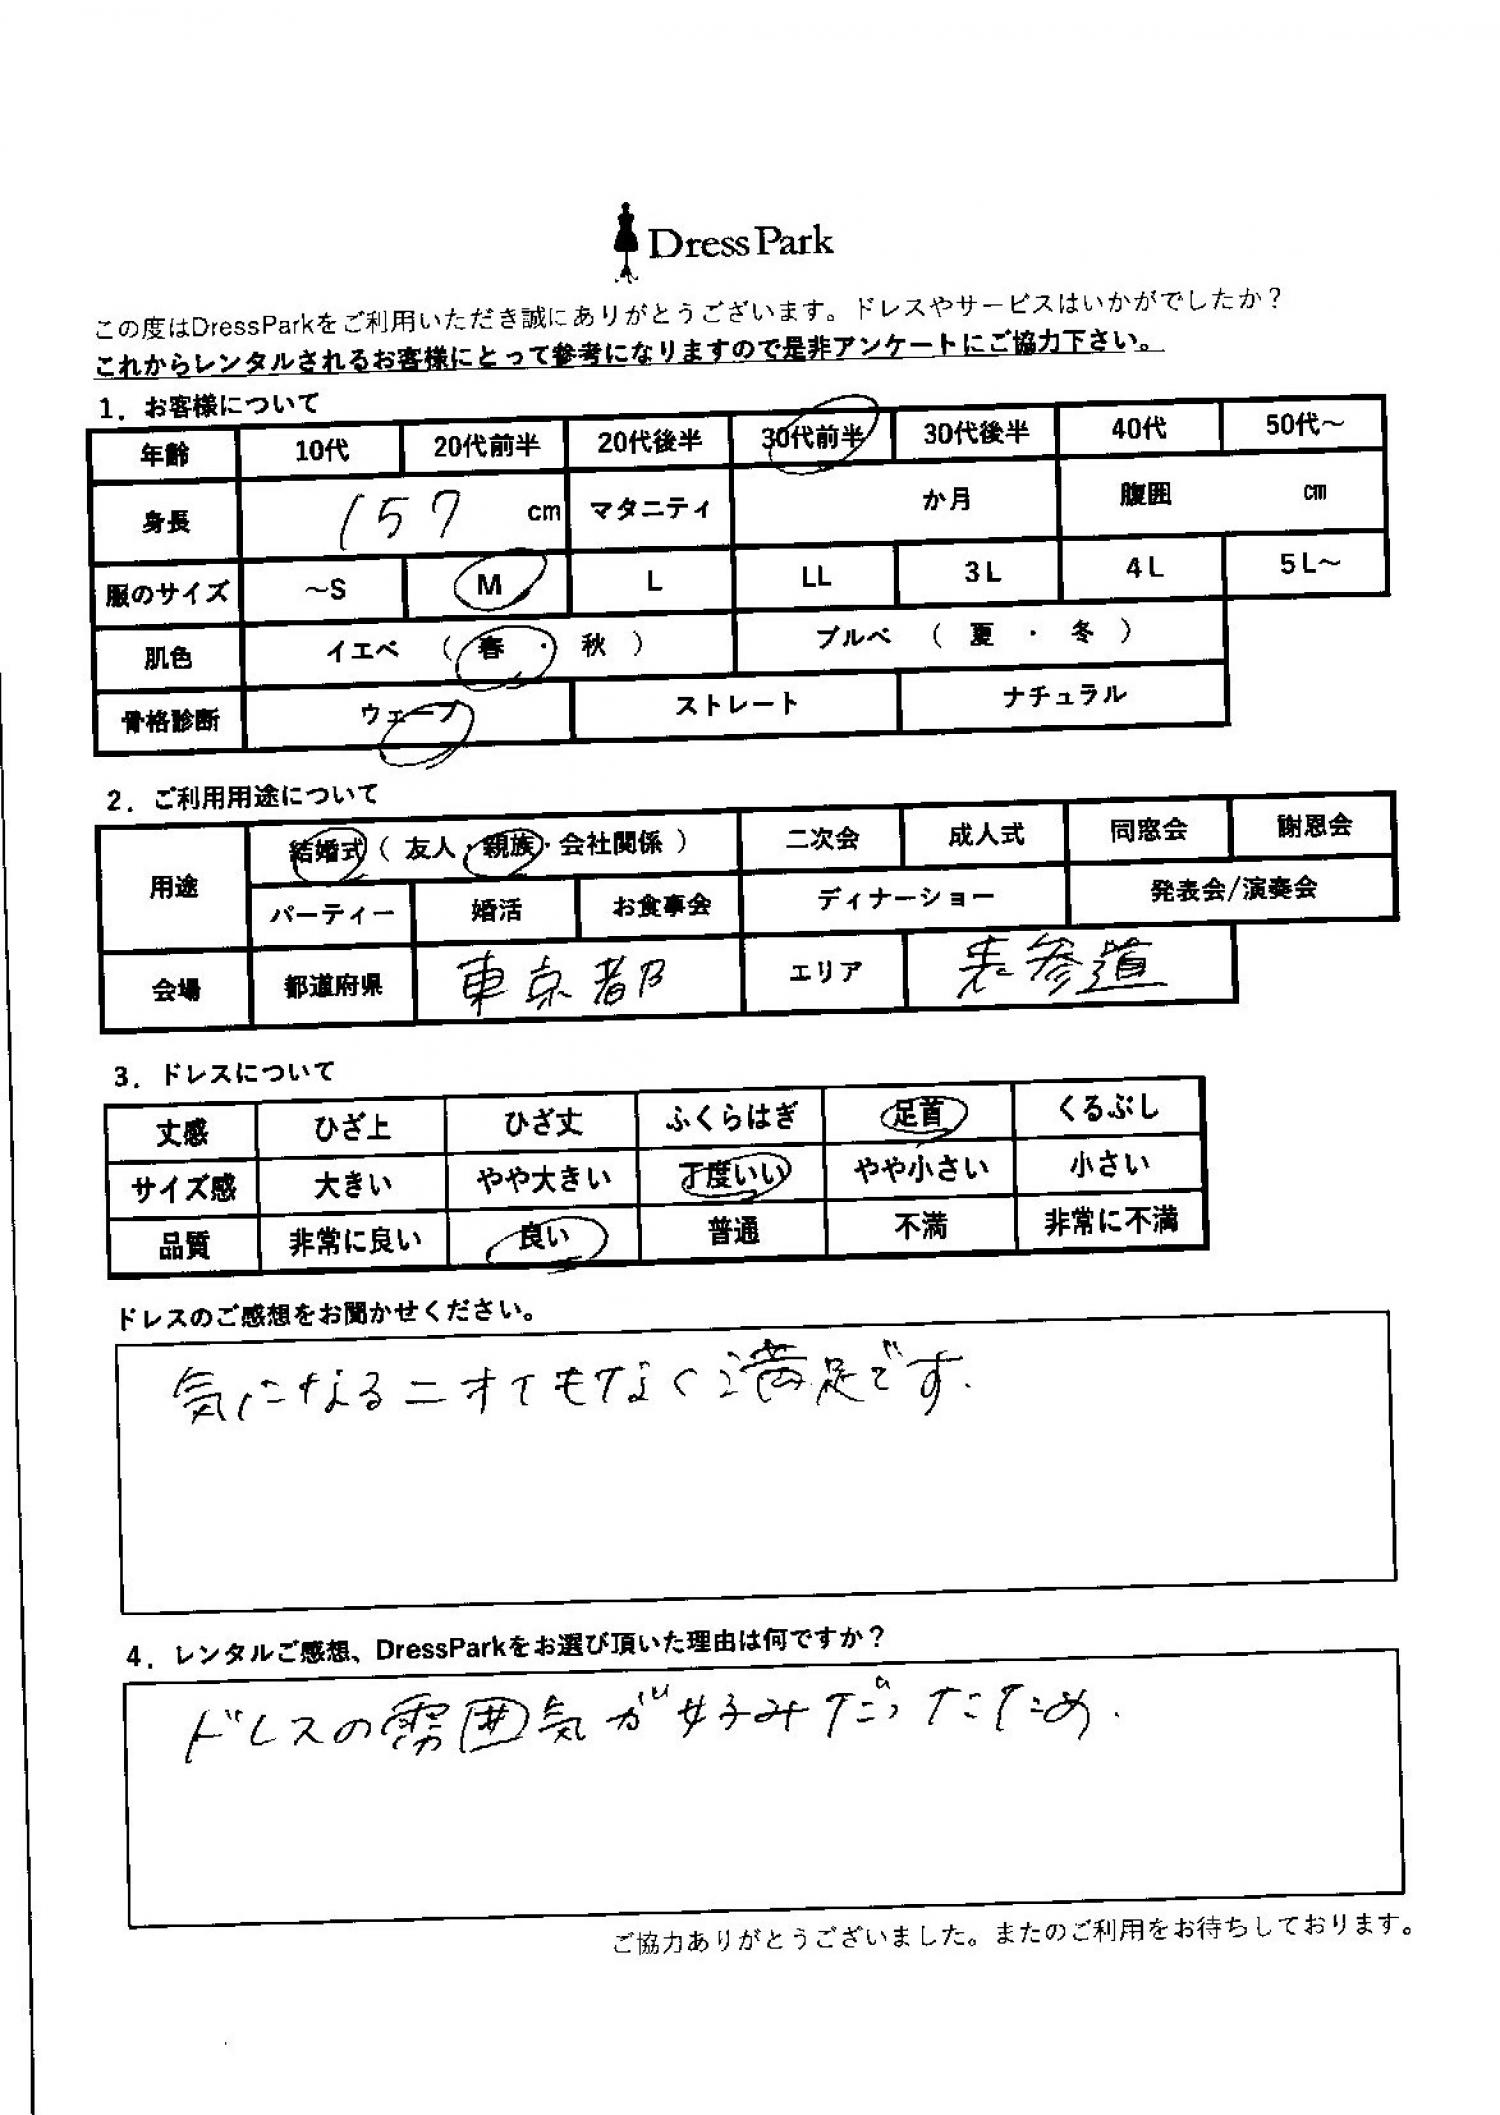 Dress Park
この度はDressParkをご利用いただき誠にありがとうございます。ドレスやサービスはいかがでしたか？
これからレンタルされるお客様にとって参考になりますので是非アンケートにご協力下さい。
1．お客様について
年齢 10代 20代前半 20代後半 30代前半 30代後半 40代 50代～
身長 157 cm マタニティ か月 腹囲 cm
服のサイズ ～S M L LL 3L 4L 5L～
肌色 イエベ （ 春 ・ 秋 ） ブルベ （ 夏 ・ 冬 ）
骨格診断 ウェーブ ストレート ナチュラル
2．ご利用用途について
用途 結婚式（ 友人・親族・会社関係 ） 二次会 成人式 同窓会 謝恩会
パーティー 婚活 お食事会 ディナーショー 発表会/演奏会
会場 都道府県 東京都 エリア 表参道
3．ドレスについて
丈感 ひざ上 ひざ丈 ふくらはぎ 足首 くるぶし
サイズ感 大きい やや大きい 丁度いい やや小さい 小さい
品質 非常に良い 良い 普通 不満 非常に不満
ドレスのご感想をお聞かせください。
気になるニオイもなく満足です.
4．レンタルご感想、DressParkをお選び頂いた理由は何ですか？
ドレスの雰囲気が好みだったため.
ご協力ありがとうございました。またのご利用をお待ちしております。